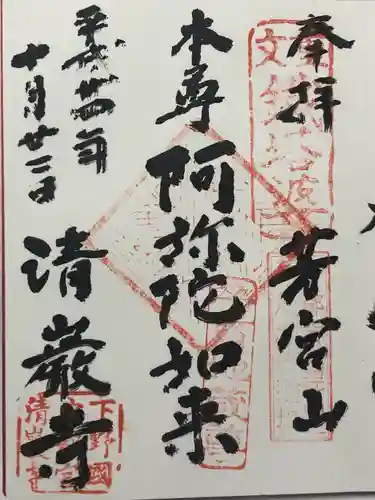 奉拝
芳宮山
本尊
阿弥陀如来
平成廿四年
十月廿二日
清巖寺
下野國
清巖寺